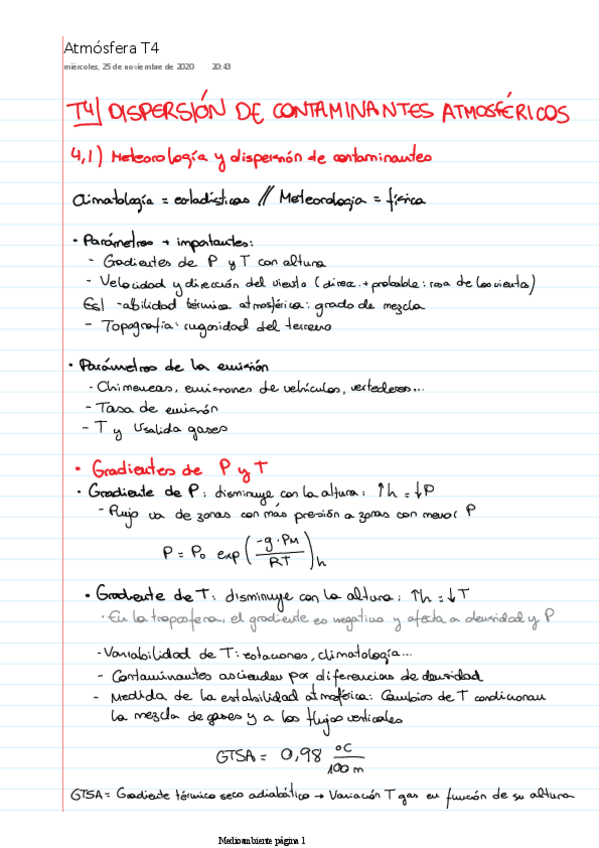 Atmósfera T4
miércoles, 25 de noviembre de 2020 20:43
T4| DISPERSIÓN DE CONTAMINANTES ATMOSFÉRICOS
4,1) Meteorología y dispersión de contaminantes
Climatología = estadísticas // Meteorología = física
• Parámetros + importantes:
- Gradientes de P y T con altura
- Velocidad y dirección del viento (direc. + probable: rosa de los vientos)
Est -abilidad térmica atmosférica: grado de mezcla
- Topografía: rugosidad del terreno
• Parámetros de la emisión
- Chimeneas, emisiones de vehículos, vertederos...
- Tasa de emisión
- T y Vsalida gases
• Gradientes de P y T
• Gradiente de P: disminuye con la altura: ↑h = ↓P
- Flujo va de zonas con más presión a zonas con menor P
P = P₀ exp(-g·PM/RT)h
• Gradiente de T: disminuye con la altura: ↑h = ↓T
• En la troposfera, el gradiente es negativo y afecta a densidad y P
- Variabilidad de T: estaciones, climatología...
- Contaminantes ascienden por diferencias de densidad
- Medida de la estabilidad atmoférica: Cambios de T condicionan
la mezcla de gases y a los flujos verticales
GTSA = 0,98 °C/100 m
GTSA = Gradiente térmico seco adiabático → Variación T gas en función de su altura
Medioambiente página 1